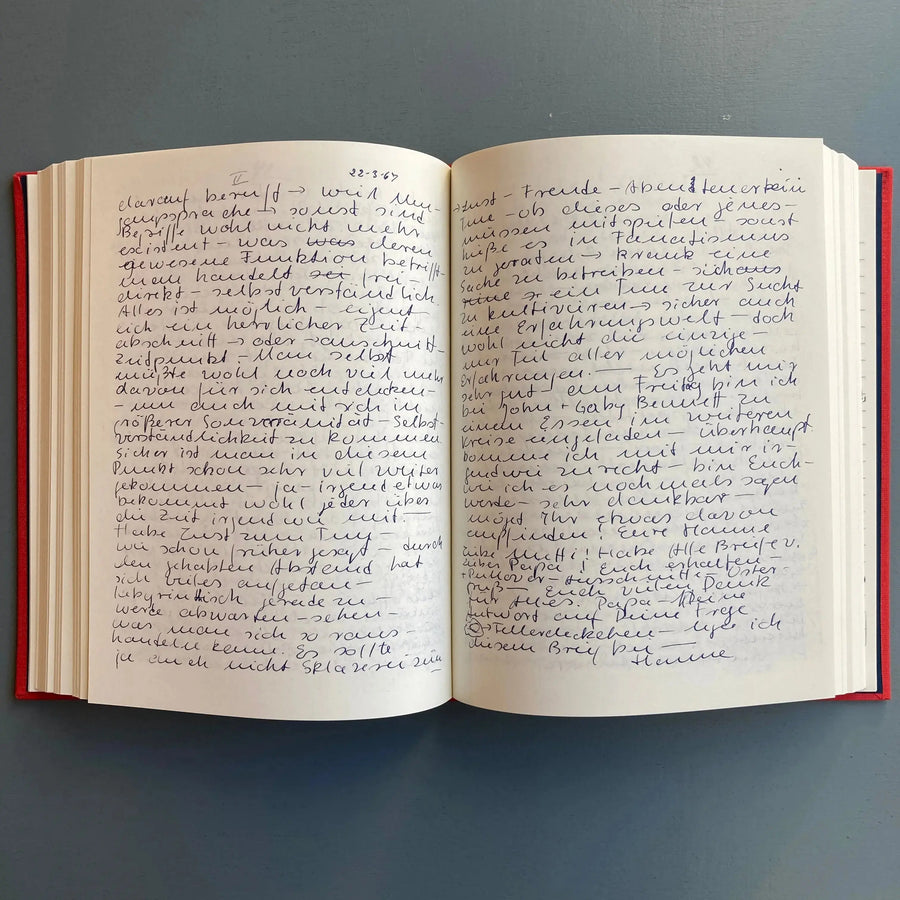 II
22-3-67
darauf beruft → weil Um-
gangssprache → sonst sind
Begriffe wohl nicht mehr
existent - was was deren
gewesene Funktion betrifft -
man handelt sei frei -
direkt - selbstverständlich.
Alles ist möglich - eigent-
lich ein herrlicher Zeit-
abschnitt → oder → ausschnitt -
Zeitpunkt - Man selbst
müßte wohl noch viel mehr
davon für sich entdecken -
- um auch mit sich in
größerer Souveränität - Selbst-
verständlichkeit zu kommen.
Sicher ist man in diesem
Punkt schon sehr viel weiter
gekommen - ja - irgend etwas
bekommt wohl jeder über
die Zeit irgendwie mit. -
Habe Lust zum Tun -
wie schon früher gesagt - durch
den gehabten Abstand hat
sich vieles aufgetan -
labyrinthisch gerade zu -
werde abwarten - sehen -
was man sich so raus -
handeln kann. Es sollte
ja auch nicht Sklaverei zum
→ Lust - Freude - Abendteuer kein
Tun - ob dieses oder jenes -
müssen mitspielen - sonst
hieße es in Fanatismus
zu geraten → krank eine
Sache zu betreiben - sich aus
ein Tun zur Sucht
zu kultivieren → sicher auch
eine Erfahrungswelt - doch
wohl nicht die einzige -
nur Teil aller möglichen
Erfahrungen. — Es geht mir
sehr gut - am Freitag bin ich
bei John + Gaby Bennett zu
einem Essen im weiteren
Kreise eingeladen - überhaupt
komme ich mit mir ir-
gendwie zurecht - bin Euch -
wie ich es nochmals sagen
werde - sehr dankbar -
mögt Ihr etwas davon
empfinden! Eure Hanne
Liebe Mutti! Habe Alle Briefe v.
Lieber Papa! Euch erhalten -
+ Pullover - Ausschnitte - Oster-
gruß - Euch vielen Dank
für Alles. Papa - Meine
Antwort auf Deine Frage
→ Tellerdeckchen - lege ich
diesem Brief bei —
Hanne